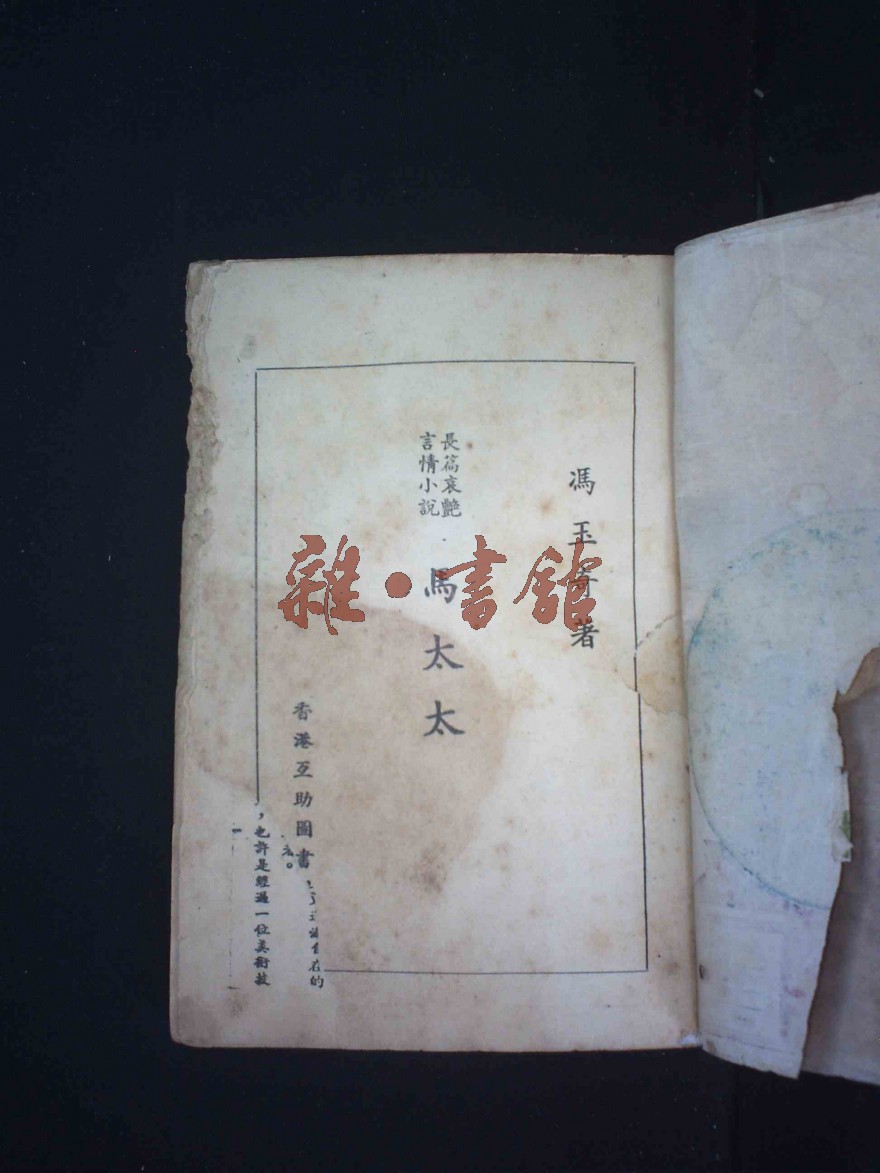 馮玉奇著
長篇哀艷
言情小說
馬太太
香港互助圖書
的
者。
，也許是經過一位美術技
雜·書館